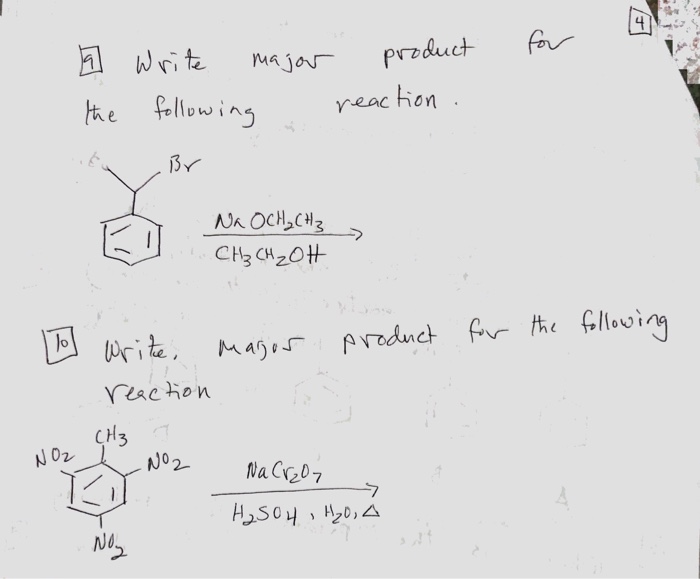 4
9 Write major product for
the following reaction.
Br
NaOCH2CH3
CH3CH2OH
10 Write, magor product for the following
reaction
CH3
NO2 NO2
NaCr2O7
H2SO4, H2O, Δ
NO2